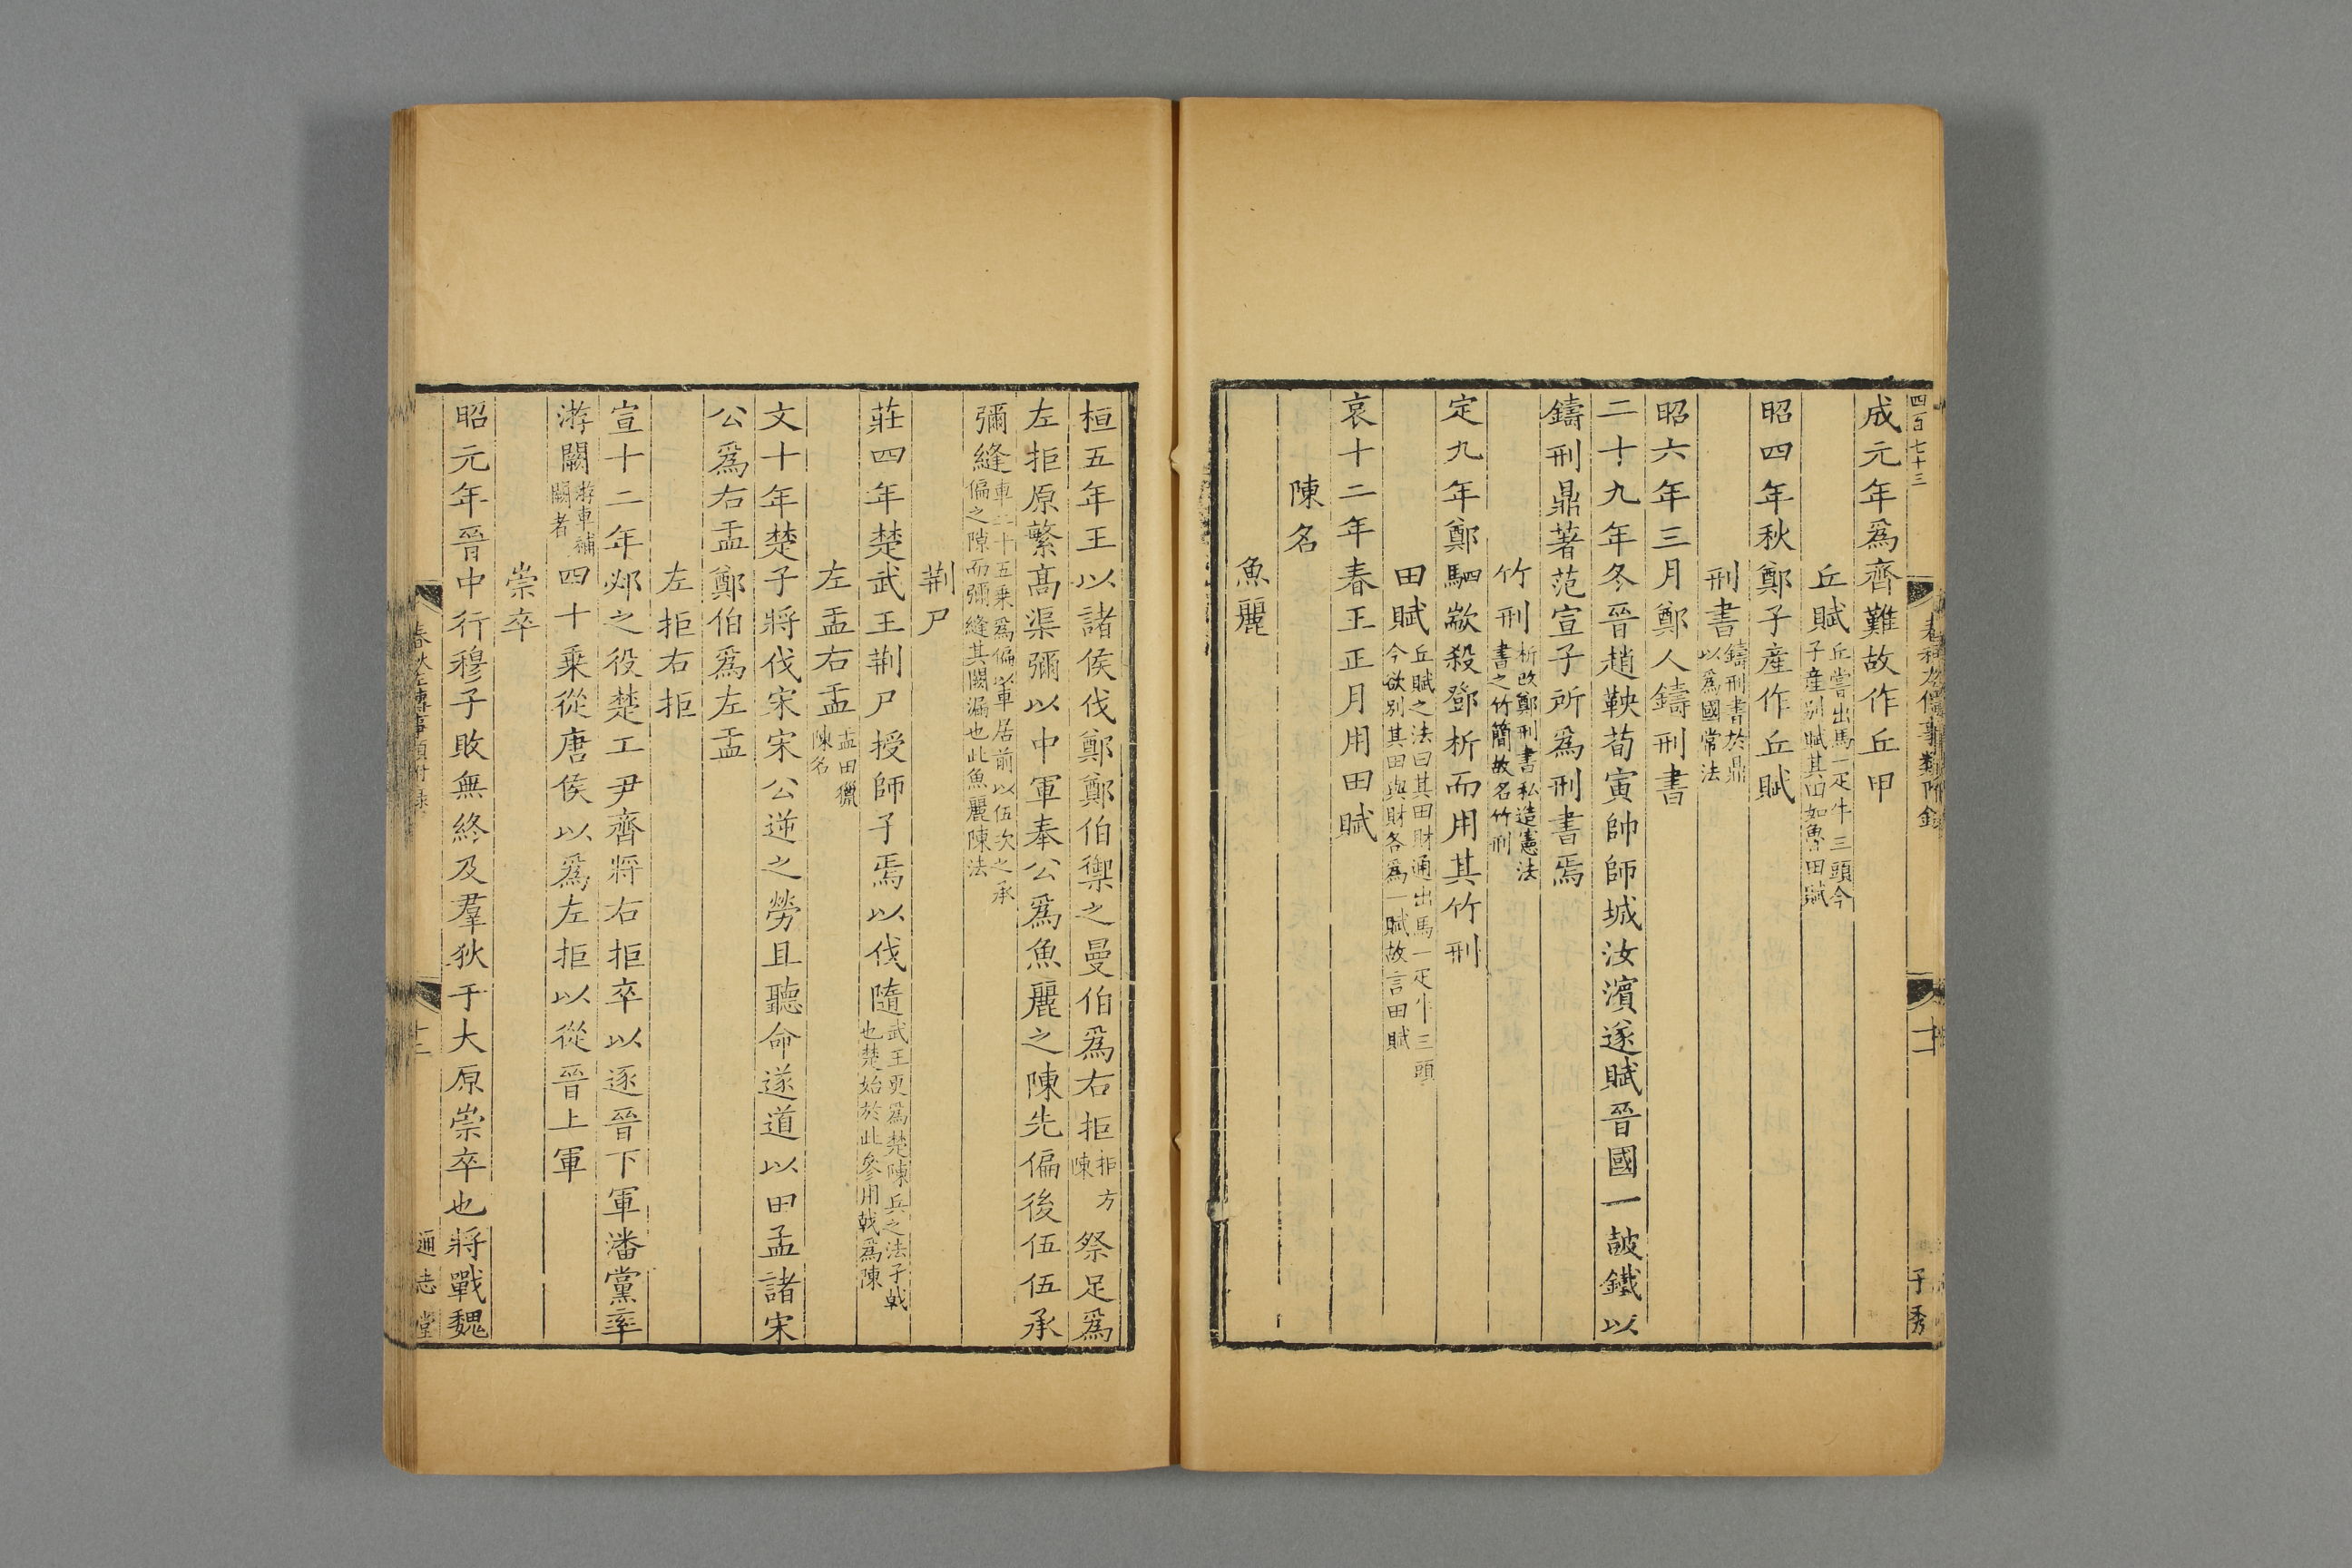 四百七十三
春秋左傳事類附錄
十一
子秀
成元年爲齊難故作丘甲
丘賦丘嘗出馬一疋牛三頭今子産别賦其田如魯田賦
昭四年秋鄭子産作丘賦
刑書鑄刑書於鼎以爲國常法
昭六年三月鄭人鑄刑書
二十九年冬晉趙鞅荀寅帥師城汝濱遂賦晉國一鼓鐵以
鑄刑鼎著范宣子所爲刑書焉
竹刑析改鄭刑書私造憲法書之竹簡故名竹刑
定九年鄭駟歂殺鄧析而用其竹刑
田賦丘賦之法曰其田財通出馬一疋牛三頭今欲别其田與財各爲一賦故言田賦
哀十二年春王正月用田賦
陳名
魚麗
桓五年王以諸侯伐鄭鄭伯禦之曼伯爲右拒拒方陳祭足爲
左拒原繁髙渠彌以中軍奉公爲魚麗之陳先偏後伍伍承
彌縫車二十五乗爲偏以車居前以伍次之承偏之隙而彌縫其闕漏也此魚麗陳法
荆尸
莊四年楚武王荆尸授師孑焉以伐隨武王更爲楚陳兵之法孑戟也楚始於此參用戟爲陳
左盂右盂盂田獵陳名
文十年楚子將伐宋宋公逆之勞且聽命遂道以田孟諸宋
公爲右盂鄭伯爲左盂
左拒右拒
宣十二年邲之役楚工尹齊将右拒卒以逐晉下軍潘黨率
游闕游車補闕者四十乗從唐侯以爲左拒以從晉上軍
崇卒
昭元年晉中行穆子敗無終及羣狄于大原崇卒也將戰魏
春秋左傳事類附録
十二
通志堂